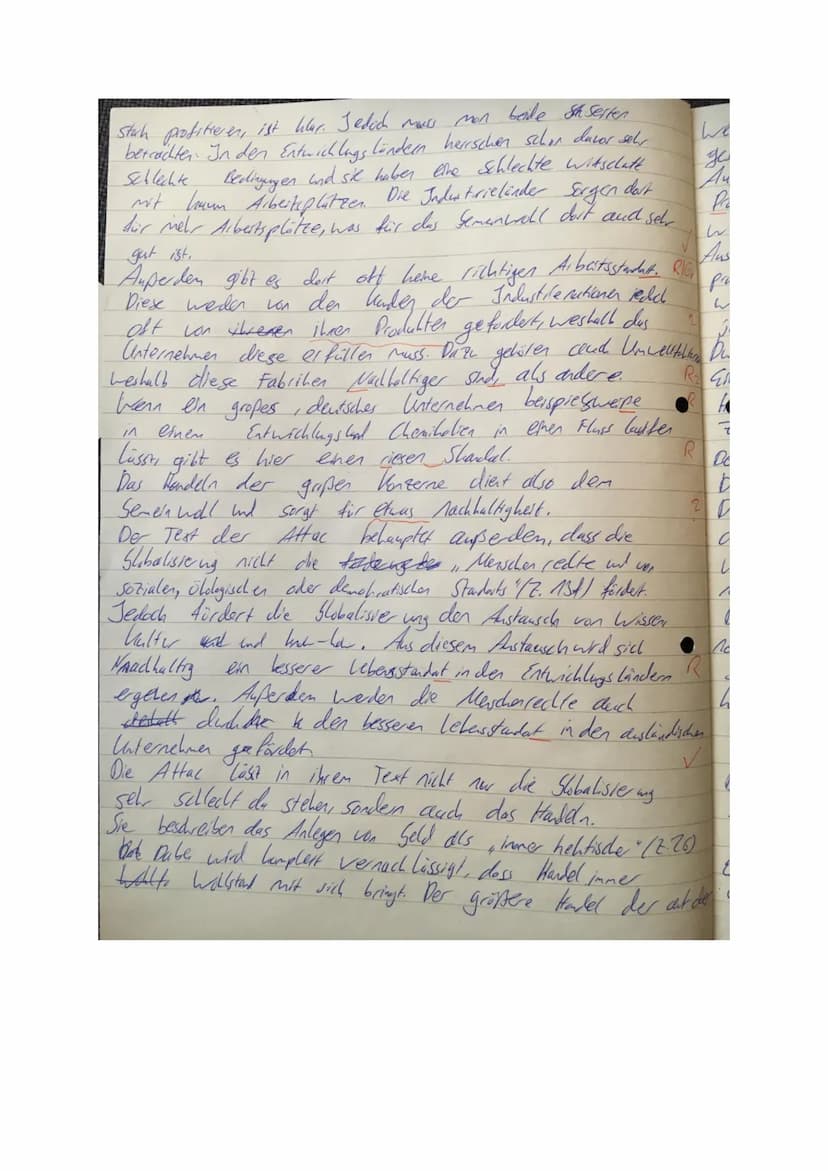 stark profitieren, ist klar. Jedoch muss man beide Seiten
betrachten. In den Entwicklungsländern herrschen schon davor sehr
schlechte Bedingungen und sie haben eine schlechte Wirtschaft
mit kaum Arbeitsplätzen. Die Industrieländer sorgen dort
für mehr Arbeitsplätze, was für das Gemeinwohl dort auch sehr
gut ist.
Außerdem gibt es dort oft keine richtigen Arbeitsstandart.
Diese werden von den Kunden der Industrienationen jedoch
oft von ihren Produkten gefordert, weshalb das
Unternehmen diese erfüllen muss. Dazu gehören auch
weshalb diese Fabriken Nachhaltiger sind, als andere.
Wenn ein großes, deutsches Unternehmen beispielsweiße
in einem Entwicklungsland Chemikalien in einen Fluss laufen
lässt, gibt es hier einen riesen Skandal.
Das Handeln der großen Konzerne dient also dem
Gemeinwohl und sorgt für etwas Nachhaltigkeit.
Der Text der Attac behauptet außerdem, dass die
Globalisierung nicht die "Menschenrechte und von
sozialen, ökologischen oder demokratischen Standarts" (Z. 13f) fördert.
Jedoch fördert die Globalisierung den Austausch von Wissen
Kultur und know-how. Aus diesem Austausch wird sich
Nachhaltig ein besserer Lebensstandart in den Entwicklungsländern
ergeben. Außerdem werden die Menschenrechte auch
durch den besseren Lebensstandart in den ausländischen
Unternehmen gefördert.
Die Attac lässt in ihrem Text nicht nur die Globalisierung
sehr schlecht da stehen, sondern auch das Handeln.
Sie beschreiben das Anlegen von Geld als "immer hektischer" (Z. 26)
Dabei wird komplett vernachlässigt, dass Handel immer
Wohlstand mit sich bringt. Der größere Handel der auf der